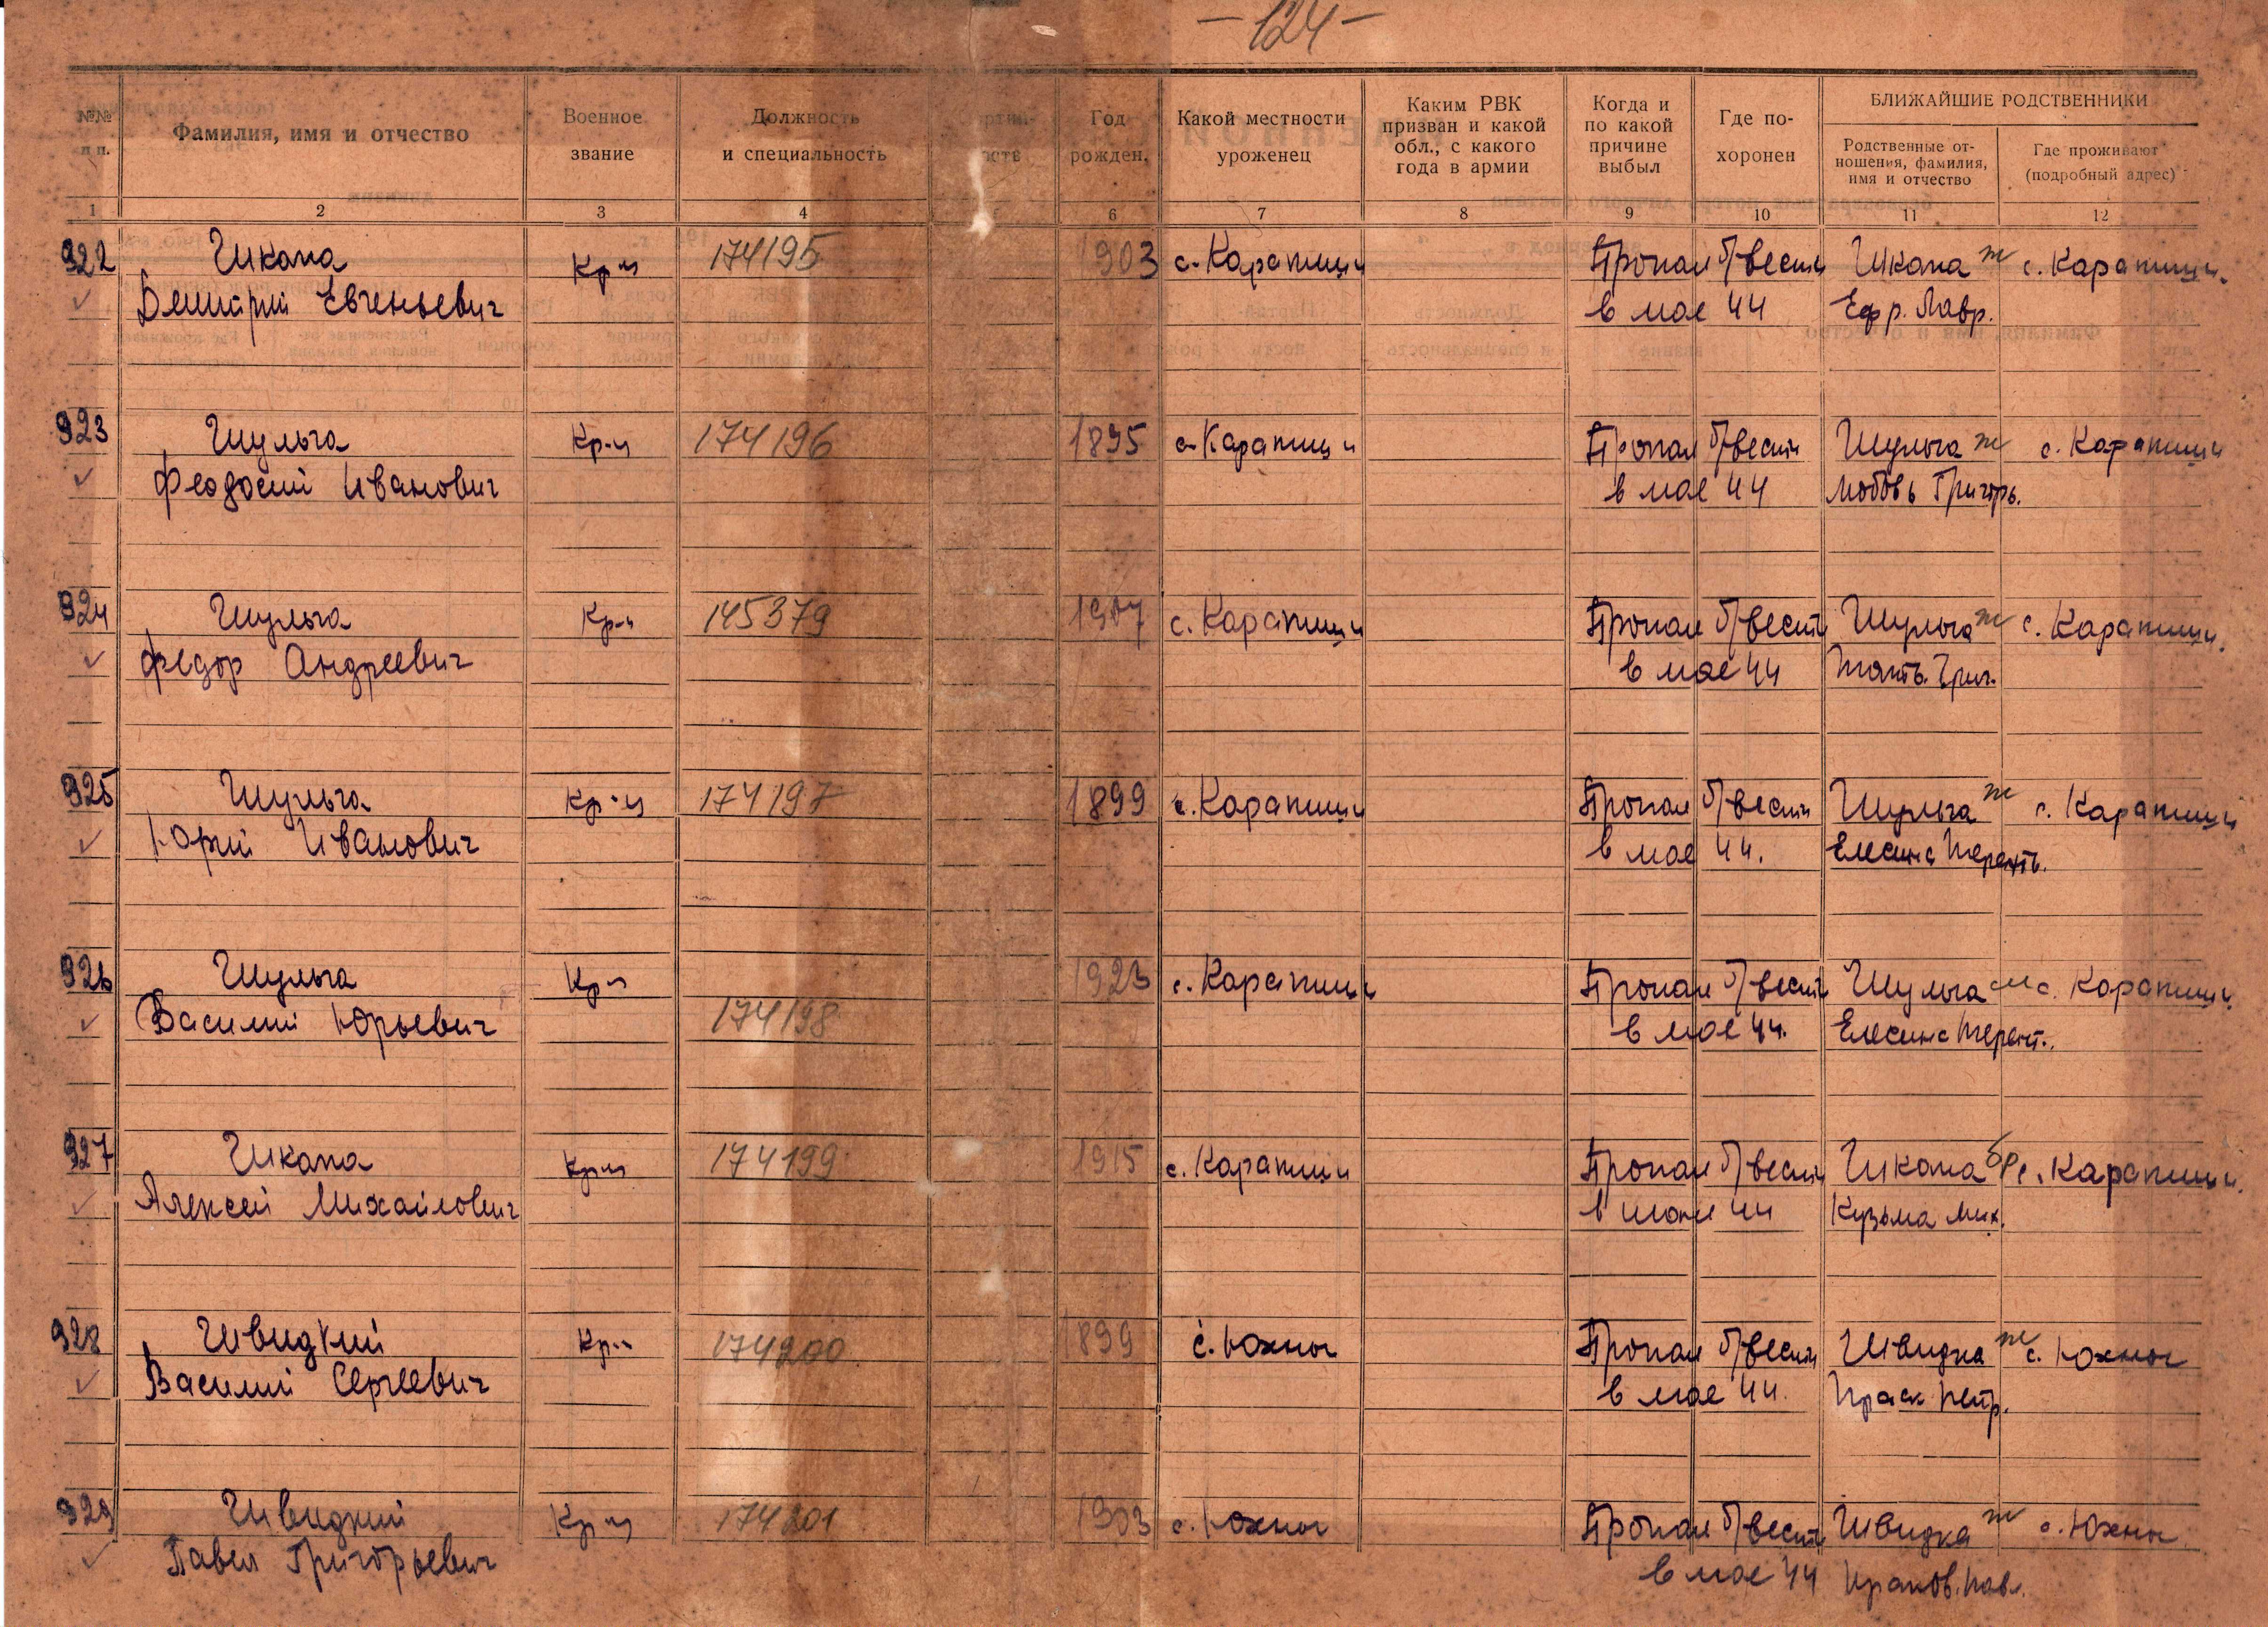 - 124 -
№№ п п.
Фамилия, имя и отчество
Военное звание
Должность и специальность
Год рожден.
Какой местности уроженец
Каким РВК призван и какой обл., с какого года в армии
Когда и по какой причине выбыл
Где похоронен
БЛИЖАЙШИЕ РОДСТВЕННИКИ
Родственные отношения, фамилия, имя и отчество
Где проживают (подробный адрес)
1 2 3 4 6 7 8 9 10 11 12
922 Шкапа Кр-ц 174195 903 с. Карапиши Пропал б/вести Шкапа ж с. Карапиши.
Дмитрий Евгеньевич в мае 44 Ефр. Лавр.
923 Шульга Кр-ц 174196 1895 с. Карапиши Пропал б/вести Шульга ж с. Карапиши
Феодосий Иванович в мае 44 Любовь Григорь.
924 Шульга Кр-ц 145379 1907 с. Карапиши Пропал б/вести Шульга ж с. Карапиши.
Федор Андреевич в мае 44 Григ.
925 Шульга Кр-ц 174197 1899 с. Карапиши Пропал б/вести Шульга ж с. Карапиши
Юрий Иванович в мае 44. Терент.
926 Шульга Кр-ц 1923 с. Карапиши Пропал б/вести Шульга м с. Карапиши
Василий Юрьевич 174198 в мае 44. Терент.
927 Шкапа Кр-ц 174199 1915 с. Карапиши Пропал б/вести Шкапа бр с. Карапиши.
Алексей Михайлович в июне 44 Кузьма Мих.
928 Швидкий Кр-ц 174200 1899 с. Южное Пропал б/вести Швидка ж с. Южное
Василий Сергеевич в мае 44. Праск Петр.
929 Швидкий Кр-ц 174201 1903 с. Южное Пропал б/вести Швидка ж с. Южное
Павел Григорьевич в мае 44 Пав.